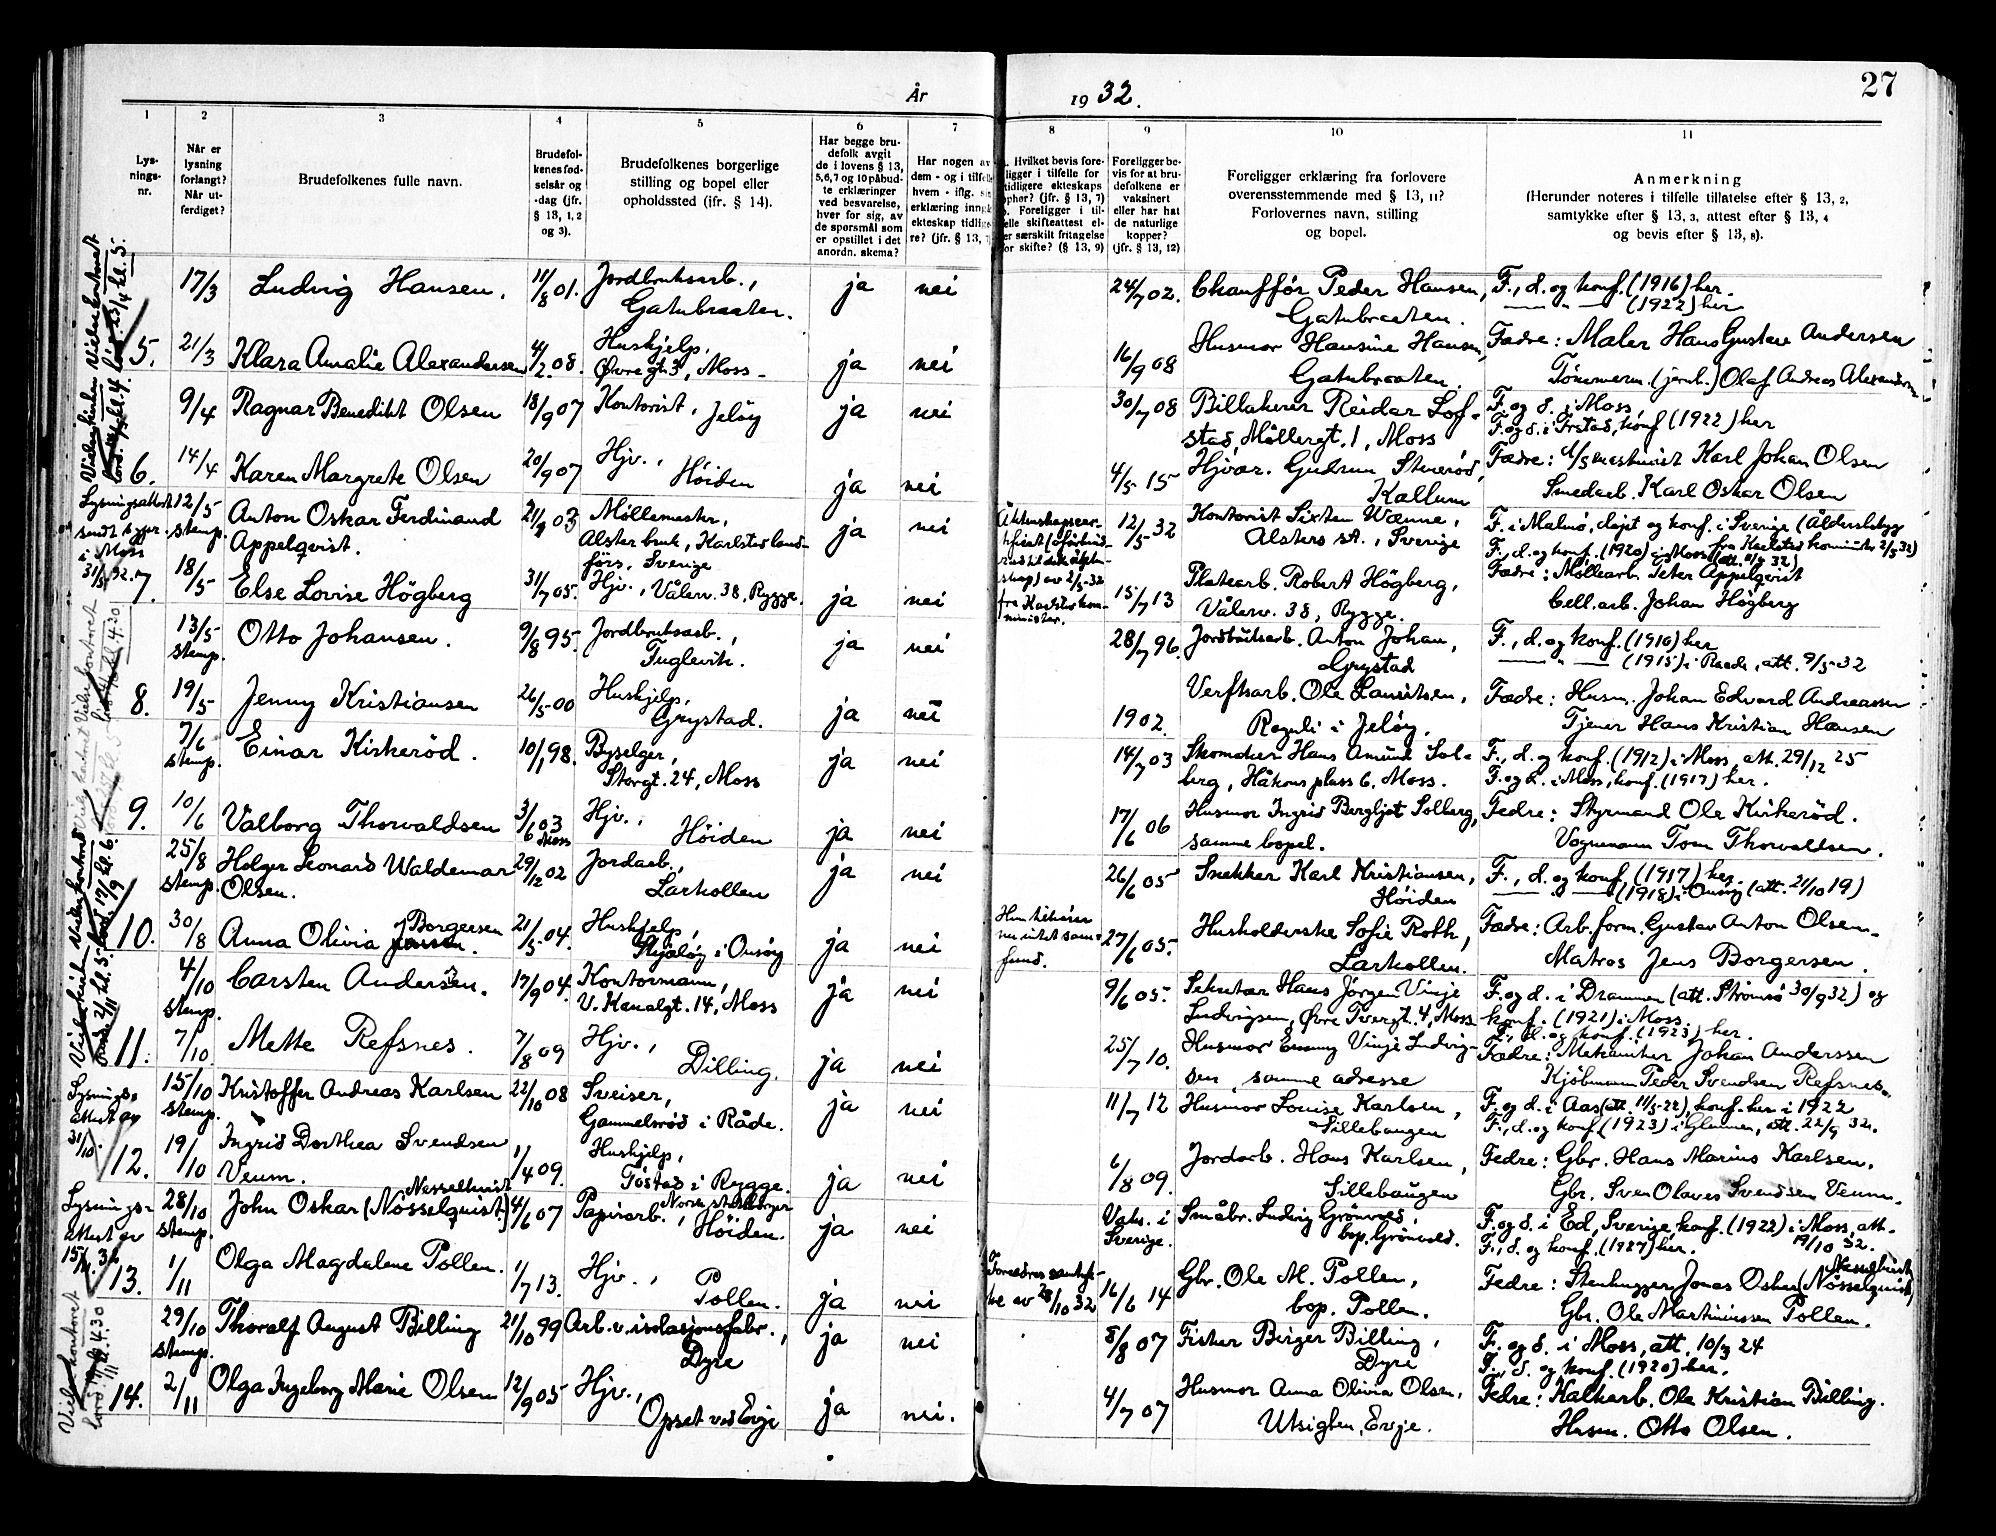 27
År
19 32.
1
2
3
4
5
6
7
8
9
10
11
Lys-
nings-
nr.
Når er
lysning
forlangt?
Når ut-
ferdiget?
Brudefolkenes fulle navn.
Brudefol-
kenes fød-
selsår og
-dag (jfr.
§ 13, 1, 2
og 3).
Brudefolkenes borgerlige
stilling og bopel eller
opholdssted (ifr. § 14).
Har begge bru-
defolk avgit
de i lovens § 13,
5, 6, 7 og 10 påbud-
te erklæringer
ved besvarelse,
hver for sig, av
de spørsmål som
er opstillet i det
anordn. skema?
Har nogen av
dem - og i tilfelle
hvem - iflg. sin
erklæring inngå
ekteskap tidlige-
re? (jfr. § 13,
Hvilket bevis fore-
ligger i tilfelle for
tidligere ekteskaps
ophør? (jfr. § 13, 7)
Foreligger i til-
elle skifteattest el-
er særskilt fritagelse
or skifte? (§ 13, 9)
Foreligger be-
vis for at bru-
defolkene er
vaksinert
eller har hat
de naturlige
kopper?
(jfr. § 13, 12)
Foreligger erklæring fra forlovere
overensstemmende med § 13, 11?
Forlovernes navn, stilling
og bopel.
Anmerkning
(Herunder noteres i tilfelle tillatelse efter § 13, 2,
samtykke efter § 13, 3, attest efter § 13, 4
og bevis efter § 13, 8).
17/3 Ludvig Hansen. 11/8 01. Jordbruksarb., ja nei 24/7 02. Chauffør Peder Hansen, F., d. og konf. (1916) her.
Gatubraaten. Gatubraaten. — " — (1922) her
5. 21/3 Klara Amalie Alexandersen 4/2 08. Huskjelp, ja nei 16/9 08 Husmor Hansine Hansen, Fædre: Maler Hans Gustav Andersen
Øvregt 3, Moss - Gatubraaten. Tømmerm. (jernb.) Olaf Andreas Alexandersen
9/4 Ragnar Benedikt Olsen 18/9 07 Kontorist, Jeløy ja nei 30/7 08 Billakerer Reidar Lof- F. og d. i Moss
stad, Møllergt. 1, Moss F. og d. i Frstad, konf (1922) her
6. 14/4 Karen Margrete Olsen 20/9 07 Hjv., Høiden ja nei 4/5 15 Hjvar. Gudrun Stenerød, Fædre: d/s maskinist Karl Johan Olsen
Kallum Smedarb. Karl Oskar Olsen
Lysningsattest
sendt sogpr.
i Moss
31/5 32.
12/5 stemp. Anton Oskar Ferdinand 21/9 03 Møllemester, ja nei 12/5 32 Kontorist Sixten Wænne, F. i Malmö, døpt og konf. i Sverige (Åldersbetyg
Appelqvist. Alster bruk, Karlstad land- Alsters st., Sverige fra Karlstad kominister 2/5 32)
förs, Sverige F., d. og konf. (1920) i Moss
7. 18/5 Else Lovise Högberg 31/7 05. Hjv., Vålerv. 38, Rygge. ja nei 15/7 13 Platearb. Robert Högberg, Fædre: Møllearb. Peter Appelqvist
Vålerv. 38, Rygge. Cell.arb. Johan Högberg
13/5 stemp. Otto Johansen. 9/8 95. Jordbruksarb., ja nei 28/7 96. Jordbruksarb. Anton Johan, F., d. og konf. (1910) her
Fuglevik. Grystad — " — (1915) i Raade, att. 9/5-32
8. 19/5 Jenny Kristiansen 26/5-00 Huskjelp, ja nei 1902. Verftsarb. Ole Lauritsen, Fædre: Husm. Johan Edvard Andreassen
Grystad. Reguli i Jeløy. Tjener Hans Kristian Hansen
7/6 stemp. Einar Kirkerød. 10/1 98. Byselger, ja nei 14/7 03 Skomaker Hans Amund Sol- F., d. og konf. (1912) i Moss, att. 29/12 25
Storgt. 24, Moss berg, Håkons plass 6, Moss. F. og d. i Moss, konf. (1917) her.
9. 10/6 Valborg Thorvaldsen 3/6 03 Moss Hjv., Høiden ja nei 17/6 06 Husmor Ingrid Bergljot Solberg, Fedre: Styrmand Ole Kirkerød.
samme bopel. Vognmann Tom Thorvaldsen.
25/8 stemp. Holger Leonard Waldemar 29/12 02 Jordarb., ja nei 26/6 05 Snekker Karl Kristiansen, F., d. og konf. (1917) her.
Olsen. Larkollen Høiden — " — (1918) i Onsøy (att. 21/10 19)
10. 30/8 Anna Olivia Borgersen 21/5-04. Huskjelp, ja nei 27/6 05. Husholderske Sofie Roth, Fædre: Arb.form. Gustav Anton Olsen.
Skjæløy i Onsøy Larkollen. Matros Jens Borgersen.
4/10 stemp. Carsten Andersen. 17/9 04. Kontormann, ja nei 9/6 05. Sekretær Hans Jørgen Vinje F. og d. i Drammen (att. Strømsø 30/9 32) og
V. Kanalgt. 14, Moss Ludvigsen, Øvre Tvergt. 4, Moss konf. (1921) i Moss.
F., d. og konf. (1923) her.
11. 7/10 Mette Refsnes. 7/8 09 Hjv., Dilling. ja nei 25/7 10. Husmor Emmy Vinje Ludvig- Fædre: Mekaniker Johan Anderssen
sen, samme adresse Kjøbmann Peder Svendsen Refsnes.
Lysnings-
attest av
31/10.
15/10 stemp. Kristoffer Andreas Karlsen 22/10 08 Sveiser, ja nei 11/7 12 Husmor Louise Karlsen, F. og d. i Aas (att. 11/5-22), konf. her i 1922
Gammelsrød i Råde. Sillebaugen F., d. og konf. (1923) i Glemmen, att. 22/9 32.
12. 19/10 Ingrid Dorthea Svendsen 1/4 09. Huskjelp, ja nei 6/8 09. Jordarb. Hans Karlsen, Fedre: Gbr. Hans Marius Karlsen.
Veum. Tøstad i Rygge. Sillebaugen Gbr. Sven Olaves Svendsen Veum.
Lysnings-
attest av
15/11. 32
28/10 stemp. John Oskar (Nösselquist.) Nesselkvist 4/6 07 Papirarb., Norsk statsborger Høiden. ja nei Vaks. i Sverige. Småbr. Ludvig Grönvold, F. og d. i Ed, Sverige, konf. (1922) i Moss, att.
bop. Grönvold. 19/10 32.
F., d. og konf. (1927) her.
13. 1/11 Olga Magdalene Pollen. 1/7 13. Hjv., Pollen. ja nei Foreldres samtyk-
ke av 28/10 32 16/6 14 Gbr. Ole M. Pollen, Fedre: Stenhugger Jonas Oskar (Nösselquist) Nesselkvist
bop. Pollen. Gbr. Ole Martiniussen Pollen.
29/10 stemp. Thoralf August Billing 21/10 99 Arb. v. isolasjonsfabr., ja nei 8/8 07 Fisker Birger Billing, F. og d. i Moss, att. 10/3 24
Dyre Dyre F., d. og konf. (1920) her.
14. 2/11 Olga Ingeborg Marie Olsen 12/9 05 Hjv., ja nei. 4/7 07 Husmor Anna Olivia Olsen, Fedre: Kalkarb. Ole Kristian Billing.
Opset ved Evje Utsigten, Evje. Husm. Otto Olsen.